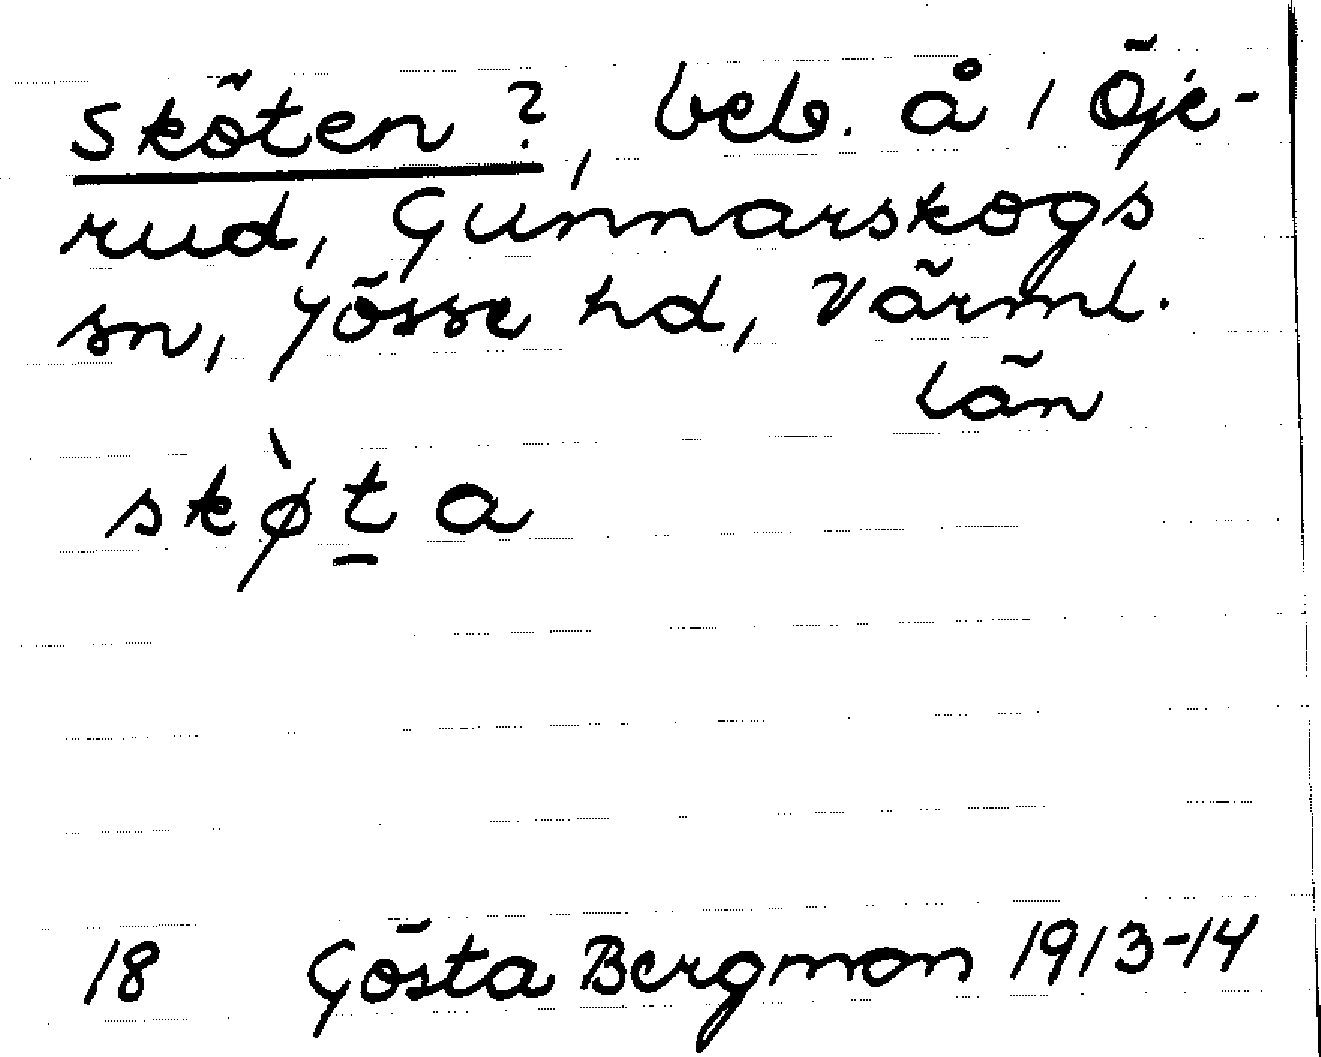 Sköten?, beb. å i Öje-
rud, Gunnarskogs
sn, Jösse hd, Värml.
län
skø̀t̲a
18 Gösta Bergman 1913-14